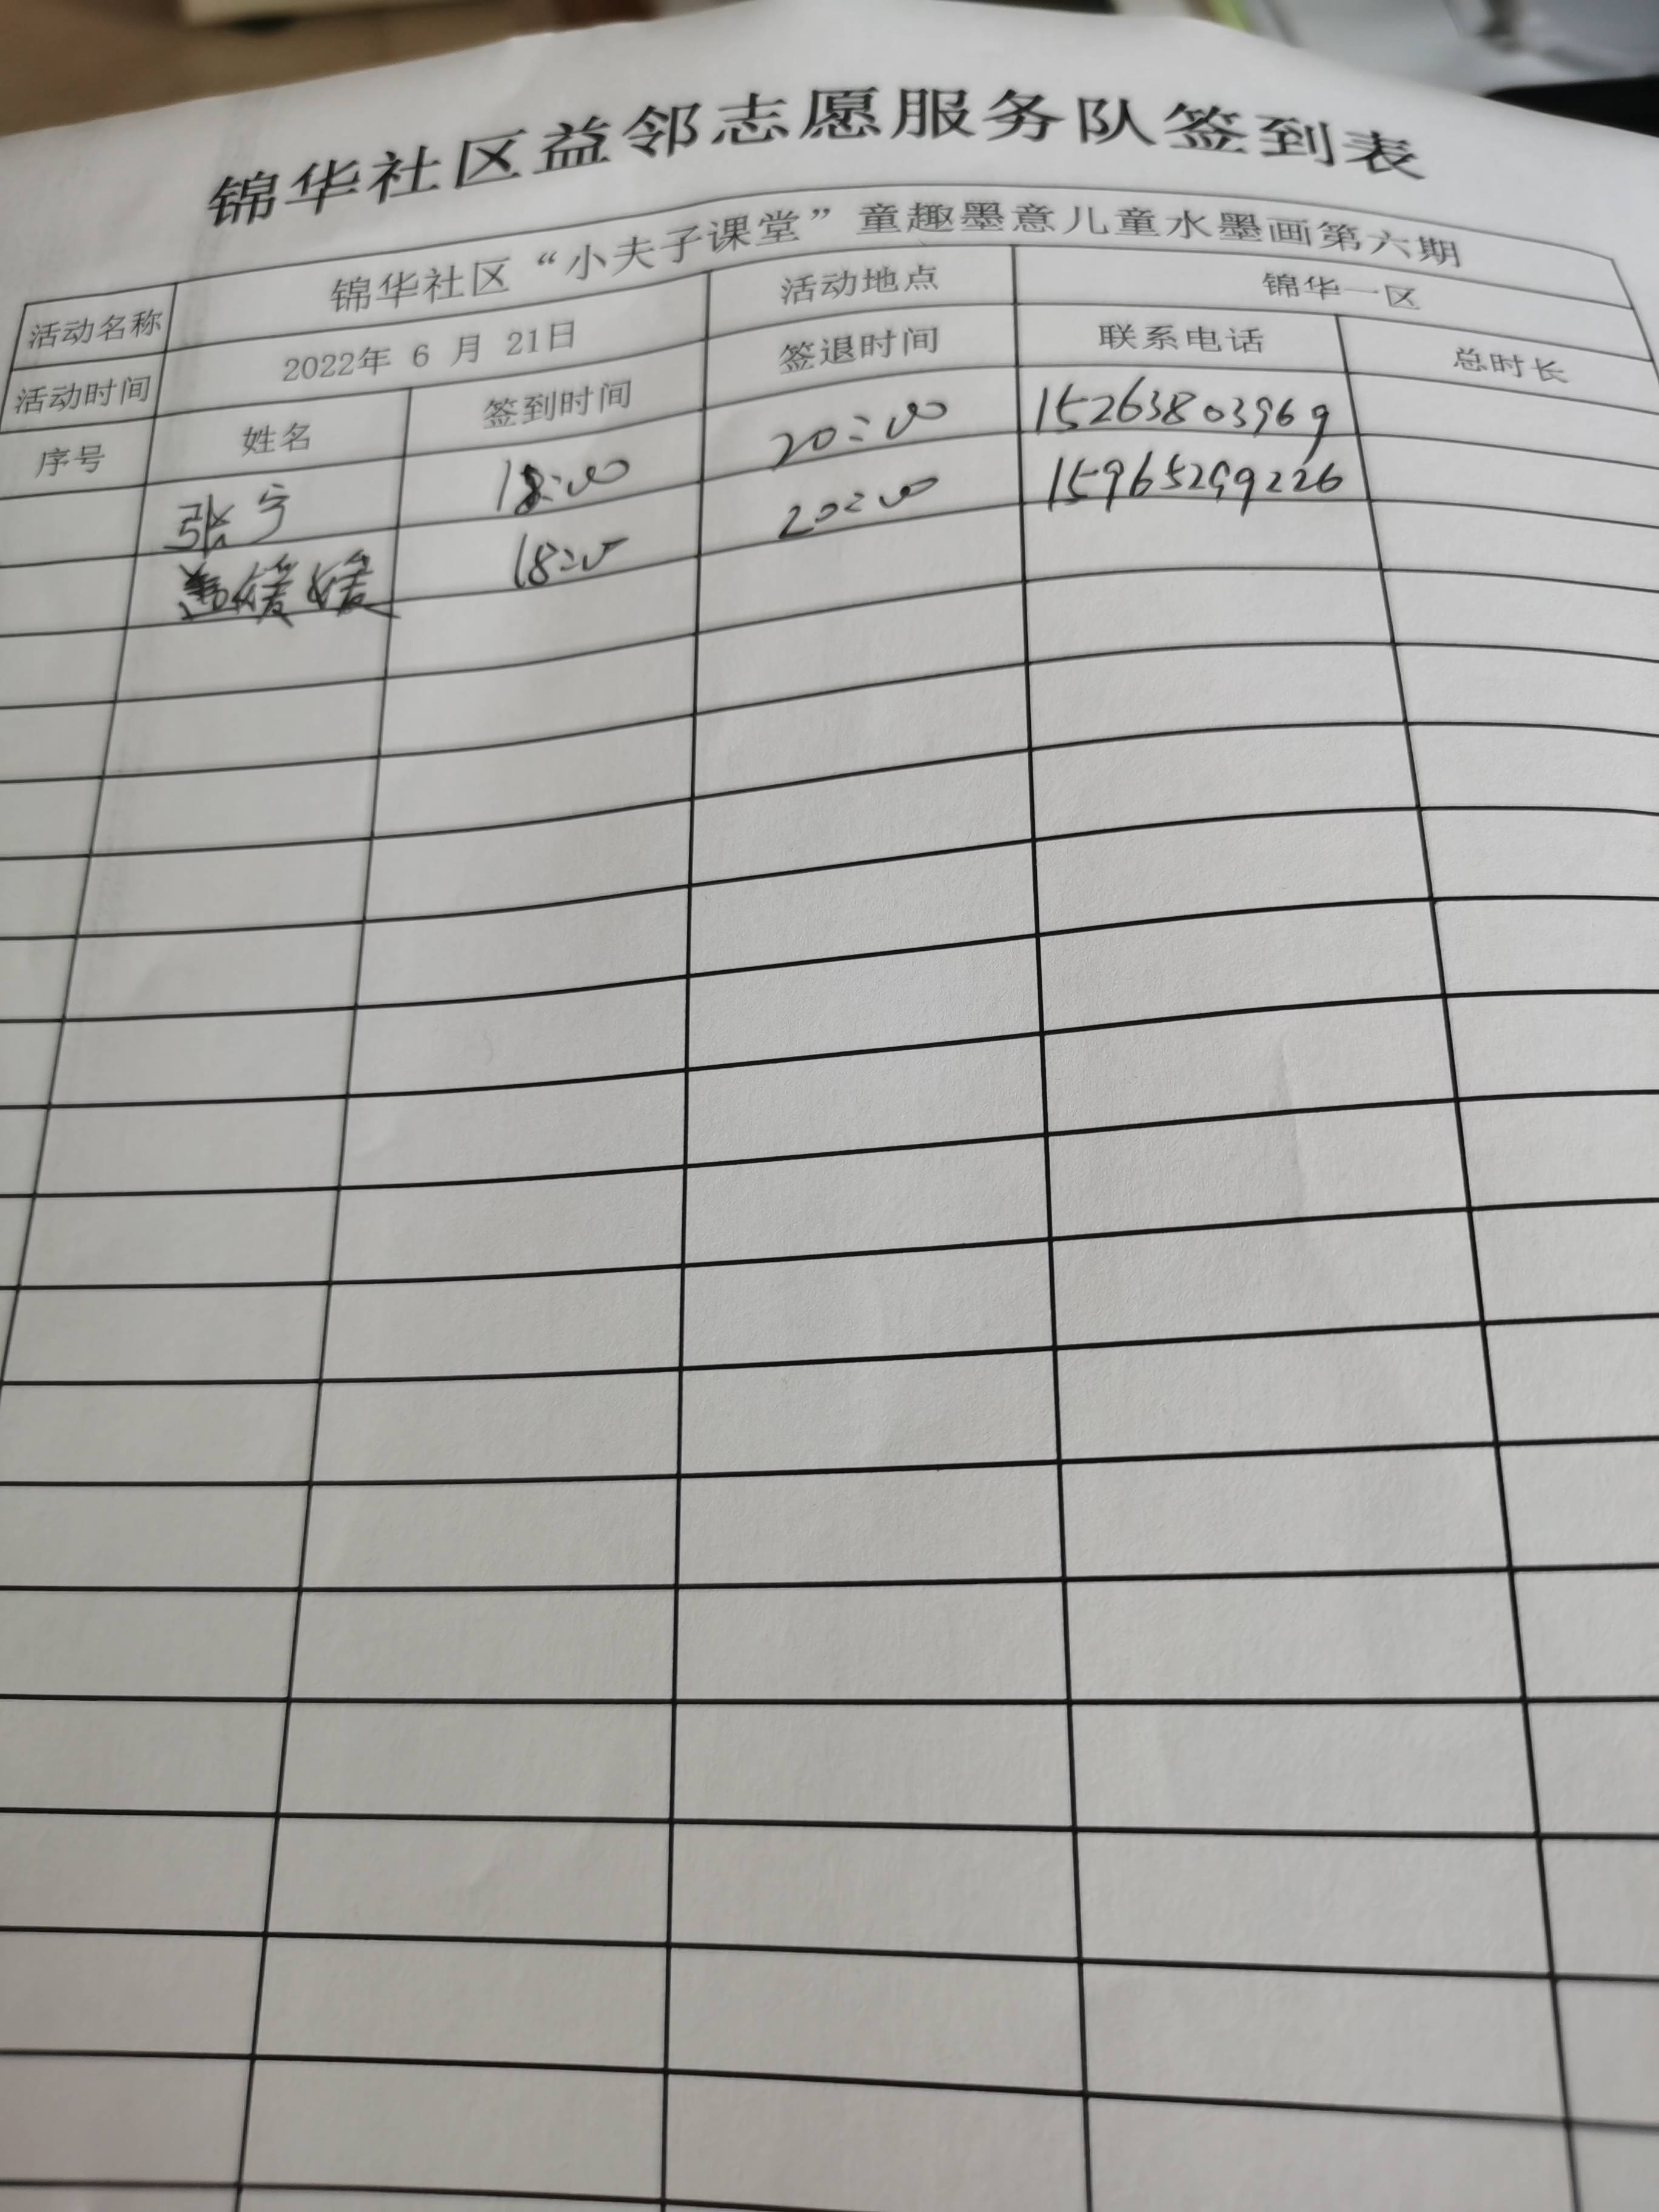 锦华社区益邻志愿服务队签到表
活动名称 锦华社区“小夫子课堂”童趣墨意儿童水墨画第六期
活动时间 2022年 6 月 21日 活动地点 锦华一区
序号 姓名 签到时间 签退时间 联系电话 总时长
张宁 18:00 20:00 15263803969
媛媛 18:00 20:00 15965299226